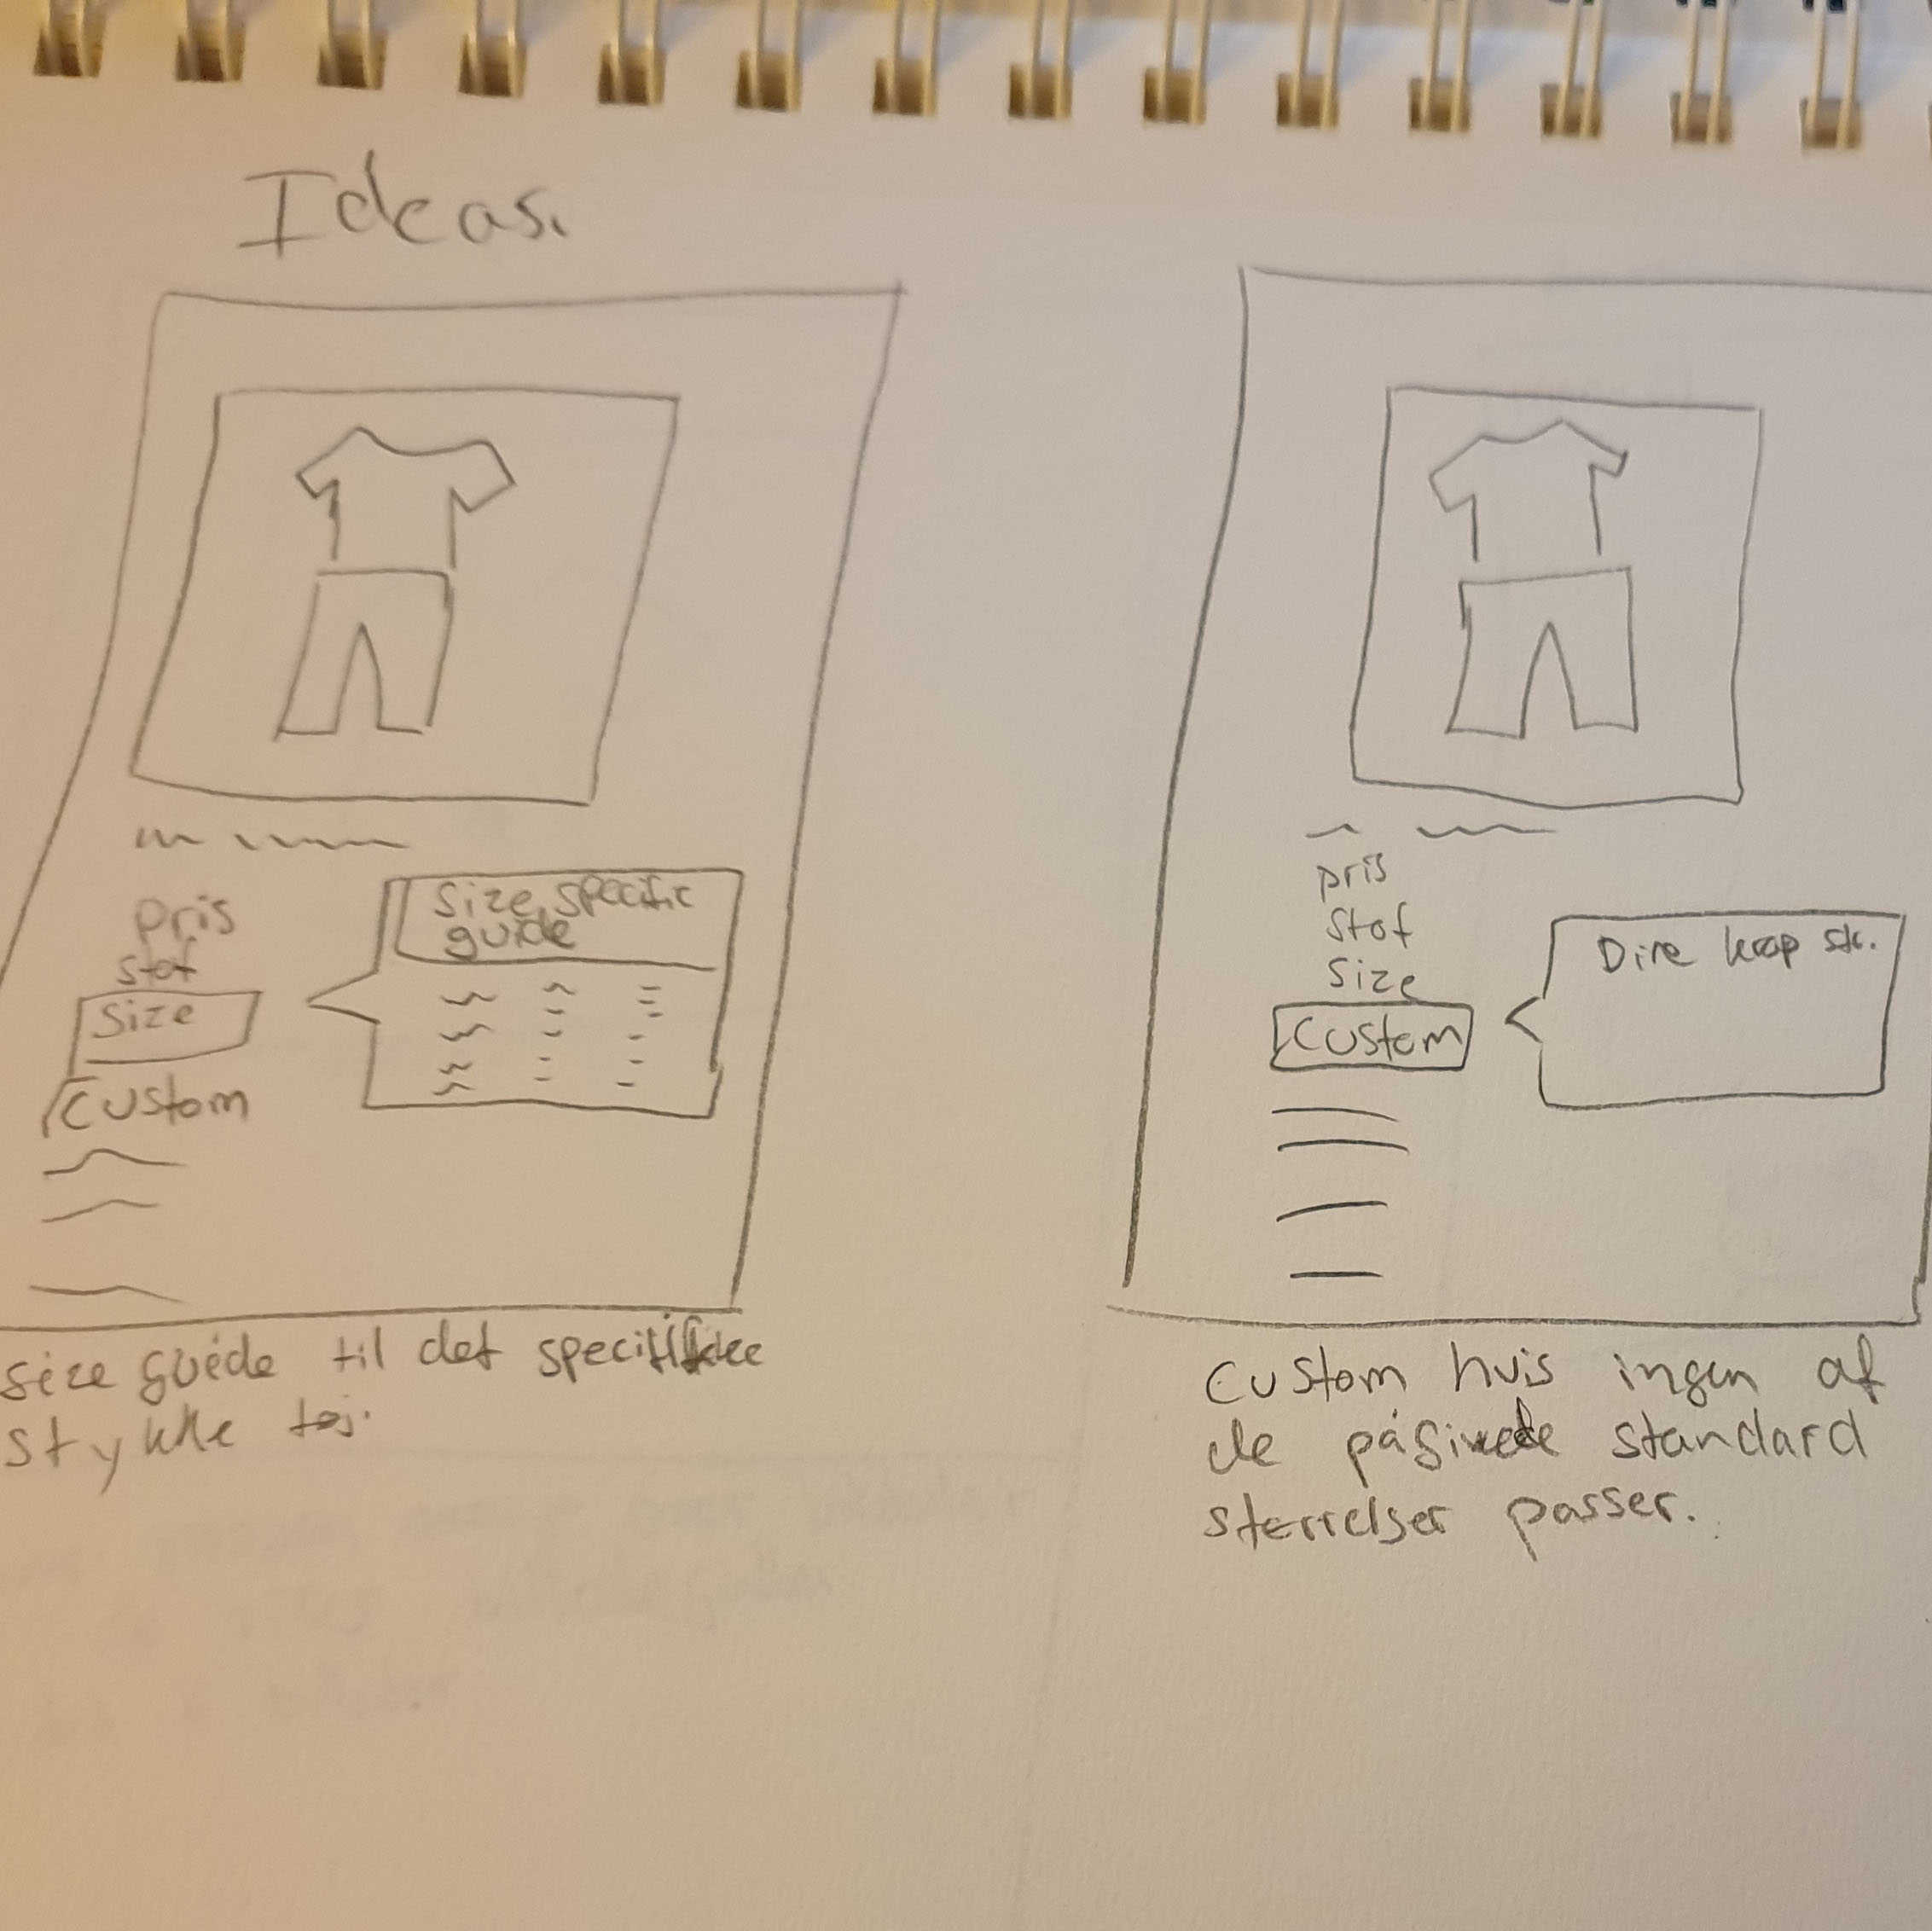 Ideas.
pris
stof
Size
Custom
Size specific
guide
size guide til det specifikke
stykke tøj.
pris
stof
size
Custom
Dine krop str.
Custom hvis ingen af
de pågivede standard
størrelser passer.